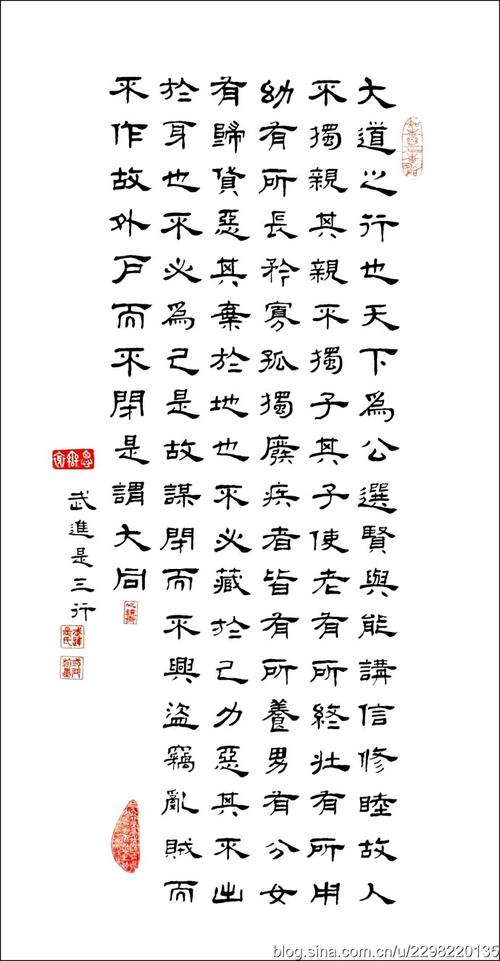 大道之行也天下為公選賢與能講信修睦故人
不獨親其親不獨子其子使老有所終壯有所用
幼有所長矜寡孤獨廢疾者皆有所養男有分女
有歸貨惡其棄於地也不必藏於己力惡其不出
於身也不必為己是故謀閉而不興盜竊亂賊而
不作故外戶而不閉是謂大同
思無邪
武進是三行
blog.sina.com.cn/u/2298220135